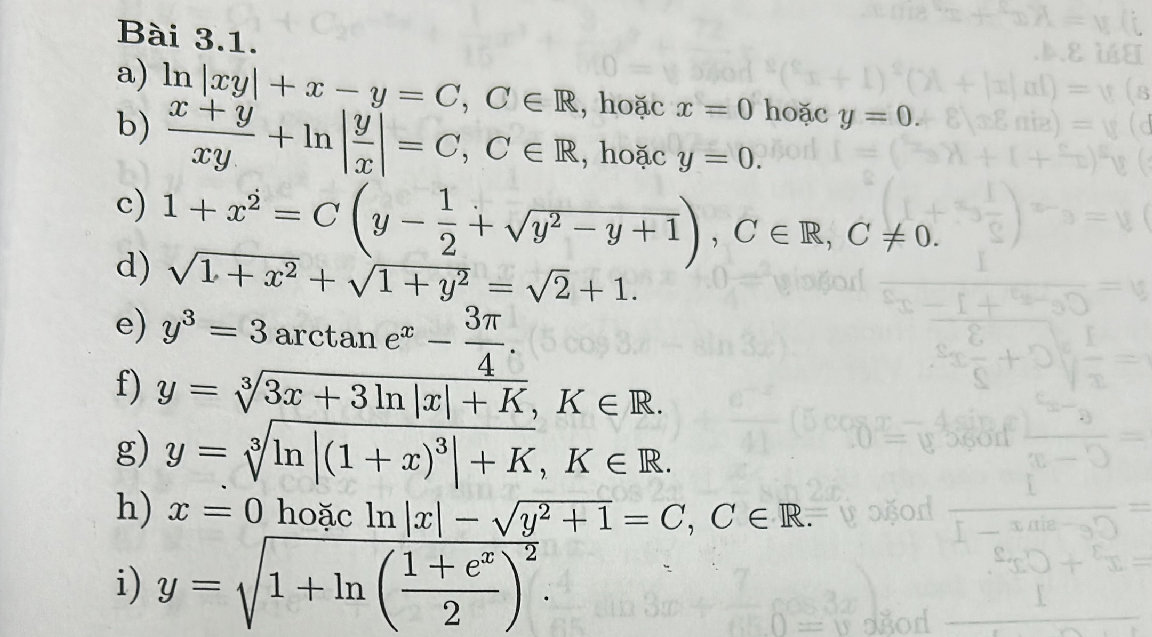 Bài 3.1.
a) ln |xy| + x − y = C, C ∈ ℝ, hoặc x = 0 hoặc y = 0.
b) \frac{x + y}{xy} + ln |\frac{y}{x}| = C, C ∈ ℝ, hoặc y = 0.
c) 1 + x² = C (y − \frac{1}{2} + √(y² − y + 1)), C ∈ ℝ, C ≠ 0.
d) √(1 + x²) + √(1 + y²) = √2 + 1.
e) y³ = 3 arctan eˣ − \frac{3π}{4}.
f) y = ∛(3x + 3 ln |x| + K), K ∈ ℝ.
g) y = ∛(ln |(1 + x)³| + K), K ∈ ℝ.
h) x = 0 hoặc ln |x| − √(y² + 1) = C, C ∈ ℝ.
i) y = √(1 + ln (\frac{1 + eˣ}{2})²).